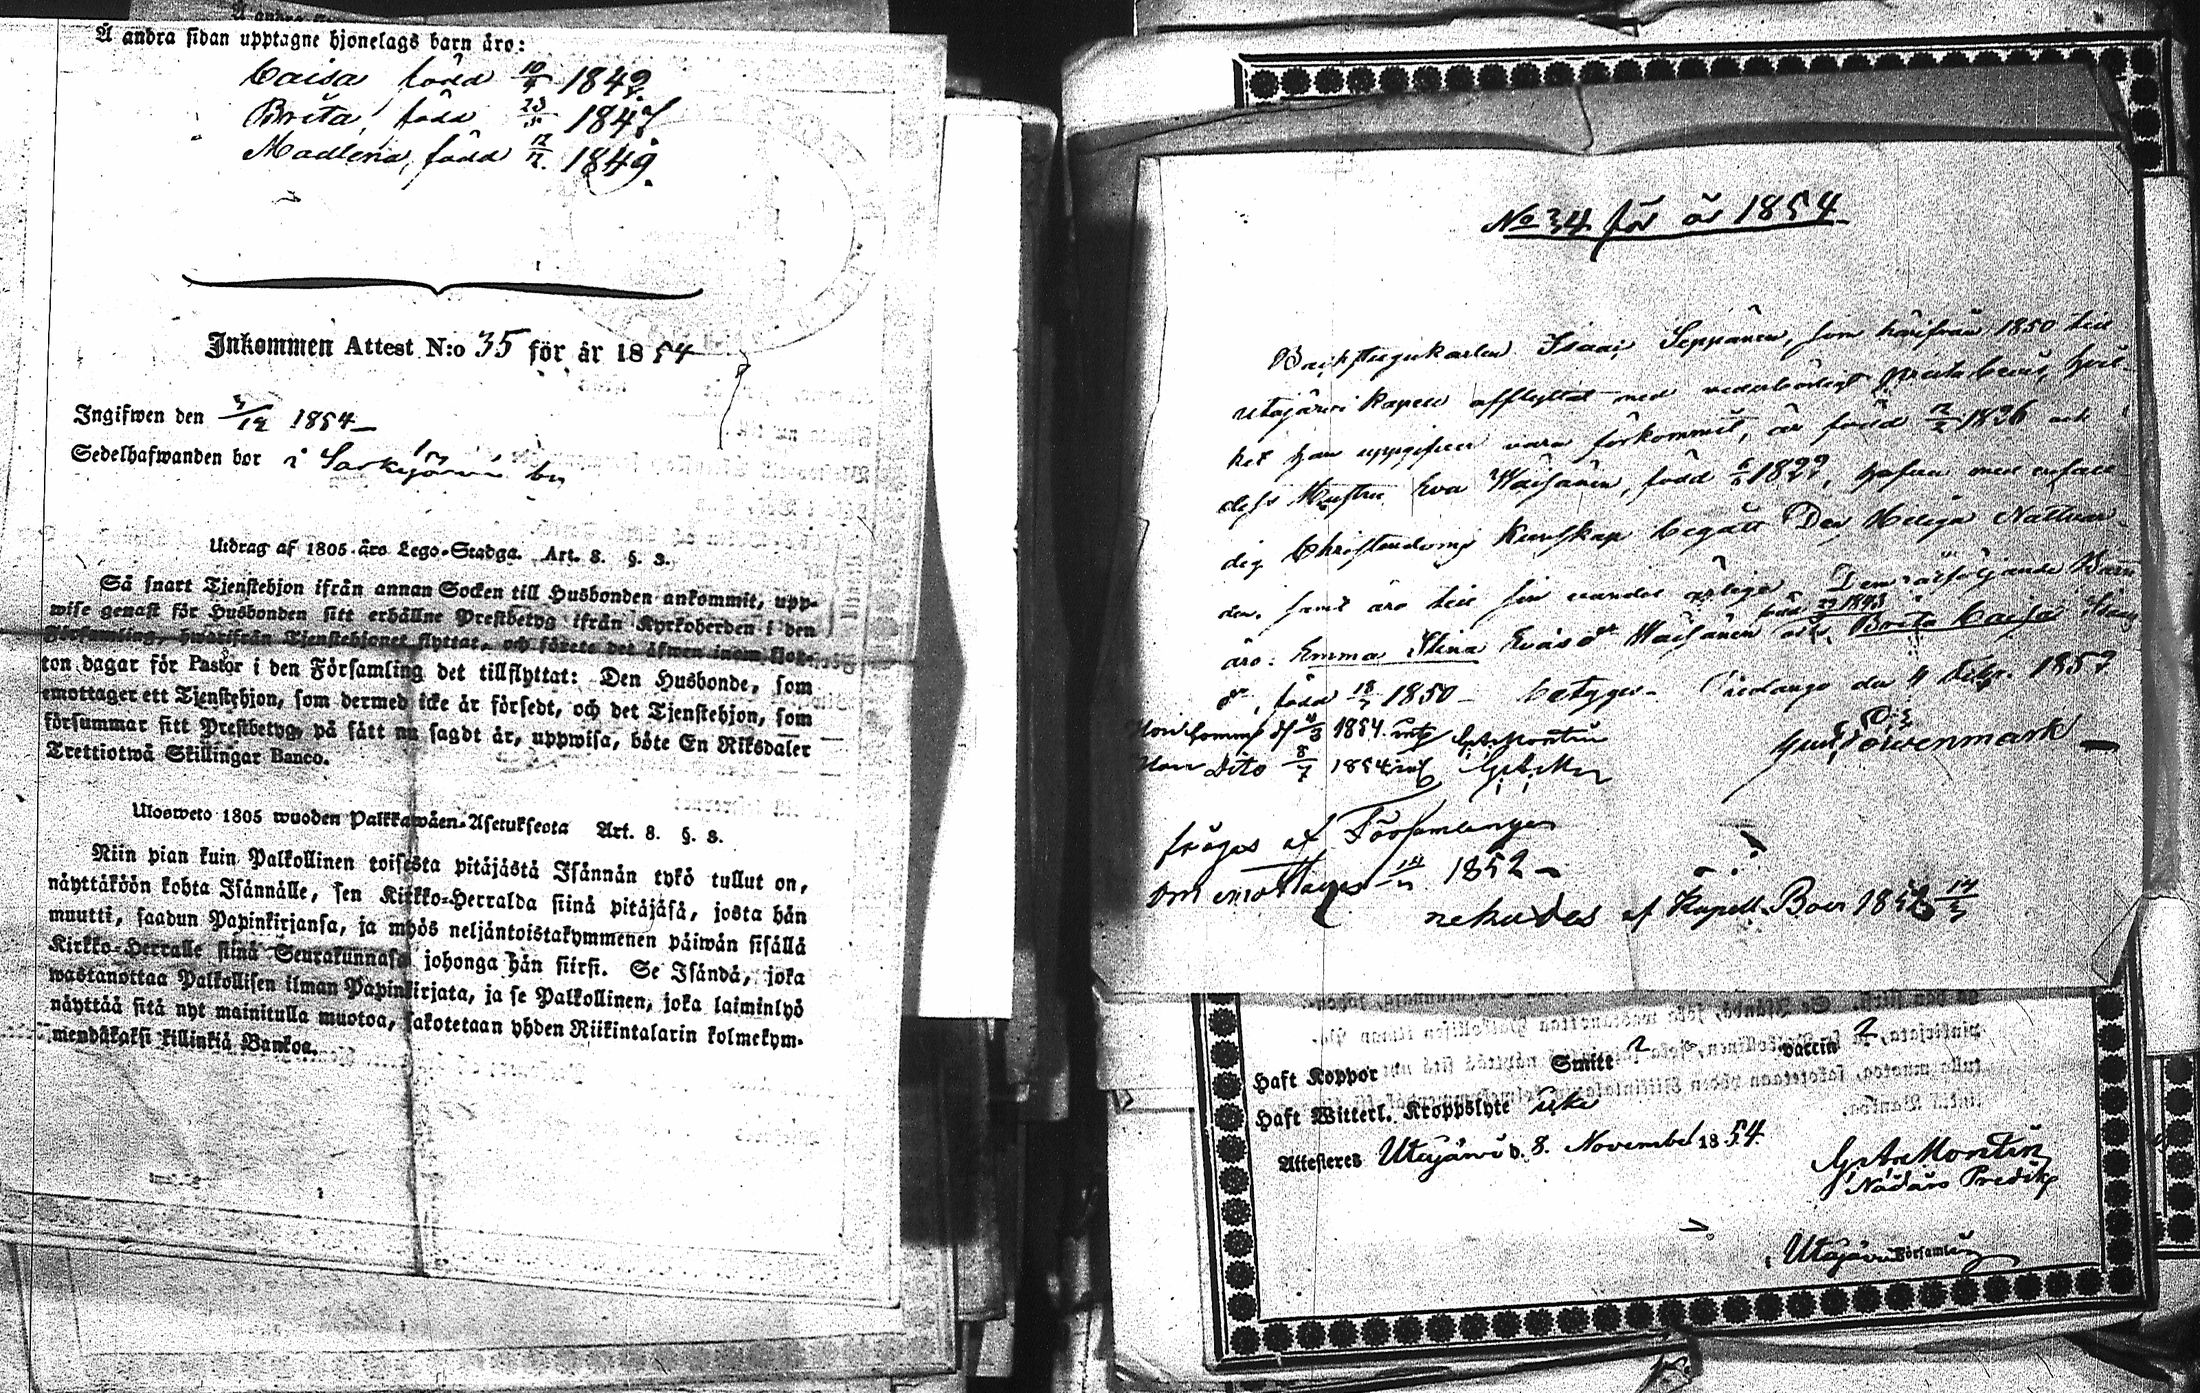 Å andra sidan upptagne hjonelags barn äro:
Caisa född 10/4 1842
Brita, född 23/3 1847
Madlena, född 12/12 1849.
Inkommen Attest N:o 35 för år 1854
Ingifwen den 3/12 1854
Sedelhafwanden bor i Sarkijärvi by
Utdrag af 1805 års Lego-Stadga. Art. 8. §. 3.
Så snart Tjenstehjon ifrån annan Socken till Husbonden ankommit, upp-
wise genast för Husbonden sitt erhållne Prestbetyg ifrån Kyrkoherden i den
Församling, hwarifrån Tjenstehjonet flyttat, och förete det äfwen inom fjor-
ton dagar för Pastor i den Församling det tillflyttat: Den Husbonde, som
emottager ett Tjenstehjon, som dermed icke är försedt, och det Tjenstehjon, som
försummar sitt Prestbetyg, på sätt nu sagdt är, uppwisa, böte En Riksdaler
Trettiotwå Skillingar Banco.
Ulosweto 1805 wuoden Palkkawäen-Asetuksesta Art. 8. §. 3.
Niin pian kuin Palkollinen toisesta pitäjästä Isännän tykö tullut on,
näyttäköön kohta Isännälle, sen Kirkko-Herralda siinä pitäjäsä, josta hän
muutti, saadun Papinkirjansa, ja myös neljäntoistakymmenen päiwän sisällä
Kirkko-Herralle siinä Seurakunnasa johonga hän siirsi. Se Isändä, joka
wastanottaa Palkollisen ilman Papinkirjata, ja se Palkollinen, joka laiminlyö
näyttää sitä nyt mainitulla muotoa, sakotetaan yhden Riikintalarin kolmekym-
mendäkaksi killinkiä Bankoa.
No 34 för år 1854
Backstugukarlen Isaac Seppänen, som härifrån 1850 till
Utajärvi Kapell afflyttat med vederbörligt Prestabevis, hvil-
ket han uppgifver vara förkommit, är född 2/2 1826 och
dess Hustru Eva Wäisänen, född 6/2 1822, hafva med enfald-
dig Christendoms Kunskap begått Den Heliga Nattvar-
den, samt äro till sin vandel ärlige. Den åtföljande Barn
född 27/3 1843
äro: Emma Stina Evasdr Wäisänen och Brita Caisa Isaacs
dr, född 18/3 1850 betygar
1854
Dito 8/7 1854
Löwenmark
fråges af Församlingen
om emottages 14/3 1852
nekades af Kapell Boer 1852 14/3
Haft Koppor Smitt 2 Vaccin 2
Haft Witterl. Kroppslyte icke
Attesteres Utajärvi d. 8. November 1854
G. A. Montin
Nådårs Predik.
Utajärvi Församling